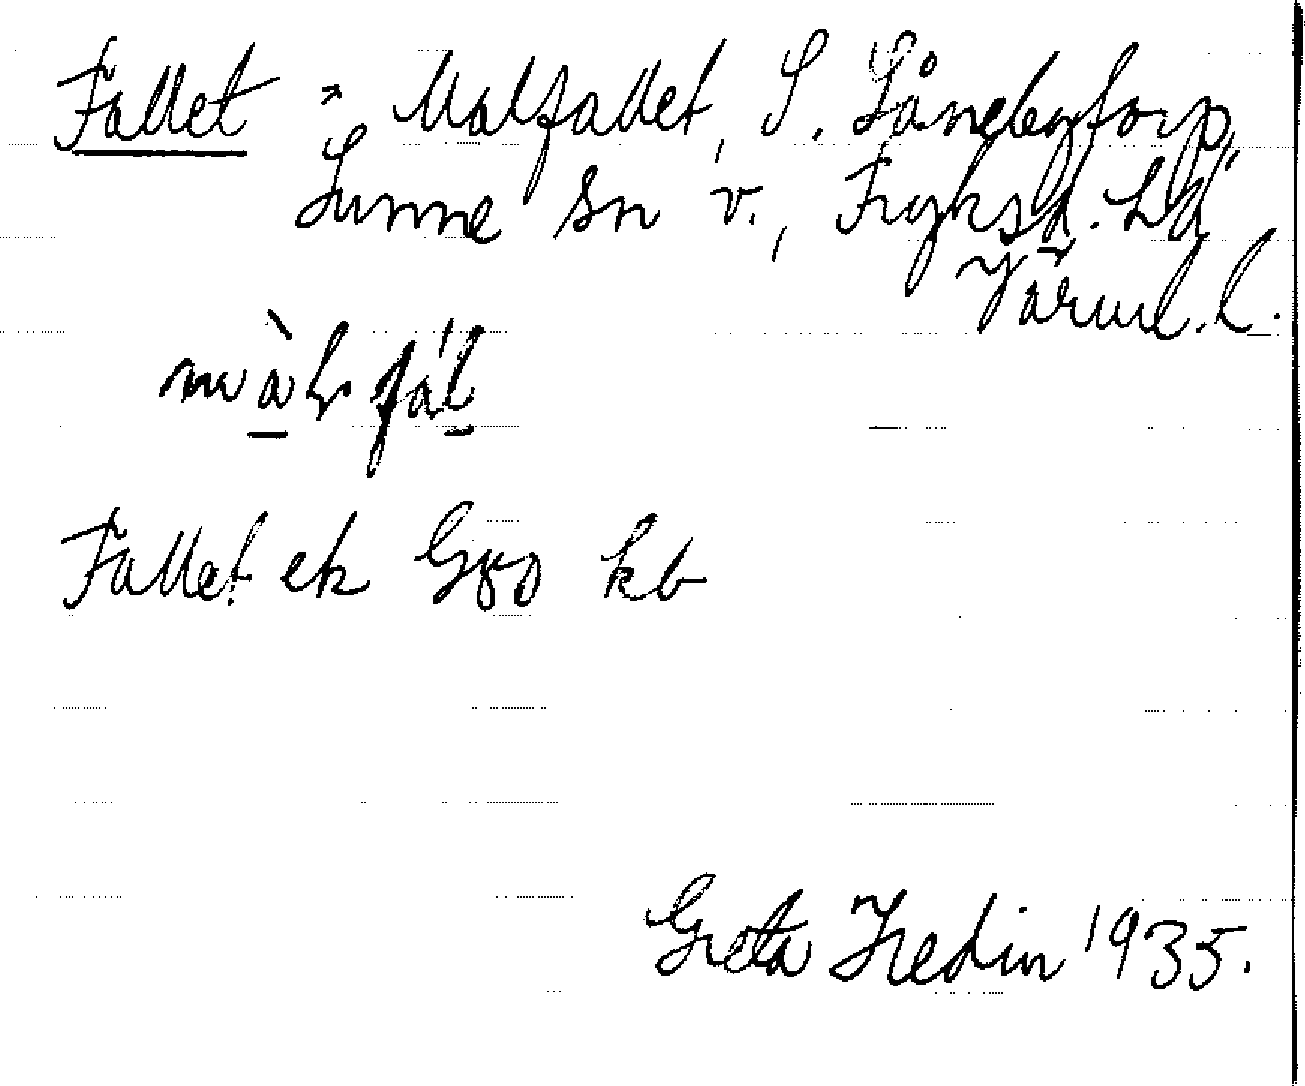 Fallet = Malfallet, S. Lånebergtorp,
Sunne sn v., Fryksd. hd
Värml. l.
Fallet ek G80 kb
Greta Hedin 1935.